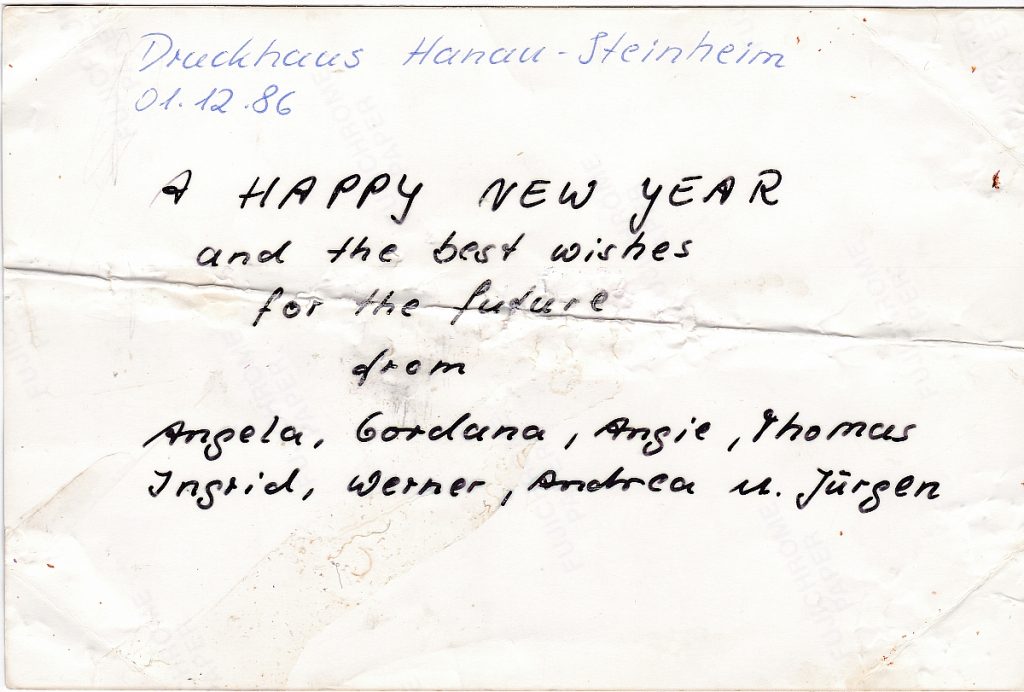 Druckhaus Hanau-Steinheim
01.12.86
A HAPPY NEW YEAR
and the best wishes
for the future
from
Angela, Gordana, Angie, Thomas
Ingrid, Werner, Andrea u. Jürgen